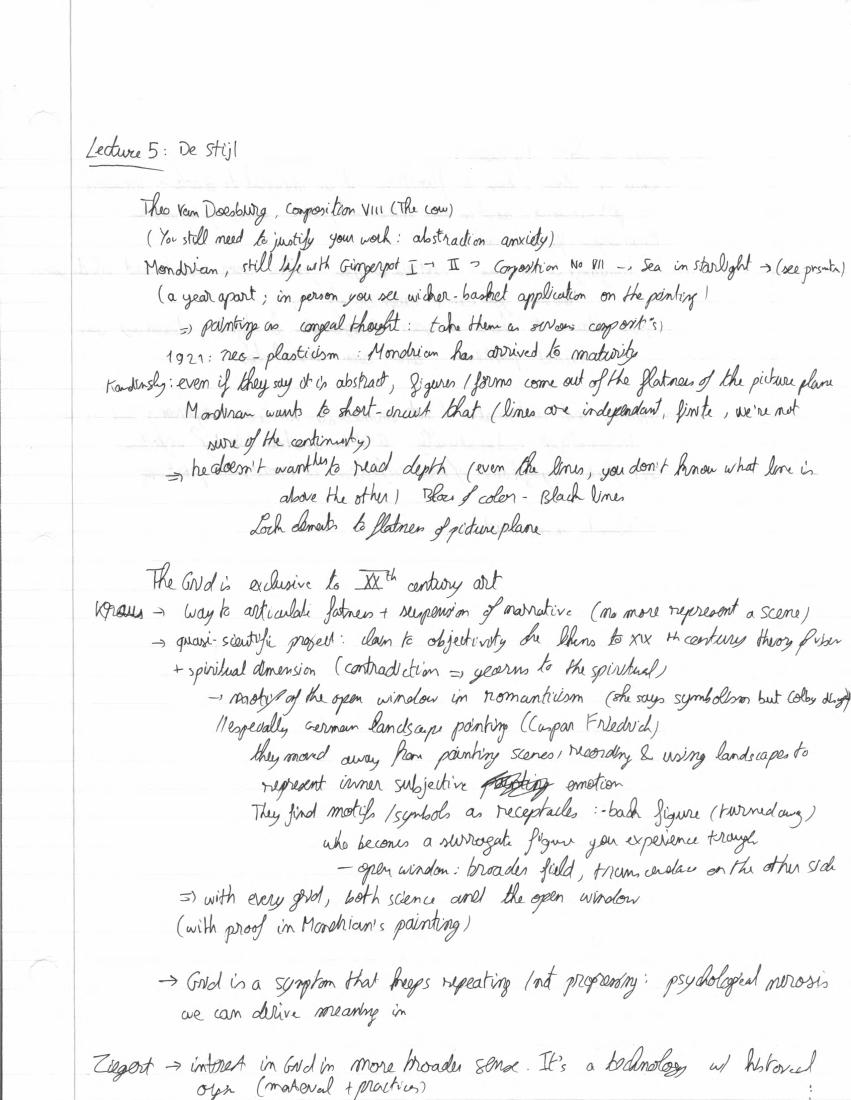 Lecture 5: De Stijl
Theo Van Doesburg, Composition VIII (The cow)
(You still need to justify your work: abstraction anxiety)
Mondrian, still life with Gingerpot I → II → Composition No VII → Sea in starlight → (see
(a year apart; in person you see wicker-basket application on the painting)
⇒ painting as congeal thought: take them as
1921: neo-plasticism: Mondrian has arrived to maturity
Kandinsky: even if they say it is abstract, figures/forms come out of the flatness of the picture plane
Mondrian wants to short-circuit that (lines are independant, finite, we're not
sure of the continuity)
⇒ he doesn't want us to read depth (even the lines, you don't know what line is
above the other) of color - Black lines
Lock elements to flatness of picture plane
The Grid is exclusive to XXth century art
Kraus → way to articulate flatness + suspension of narrative (no more represent a scene)
→ quasi-scientific project: claim to objectivity she likens to XIX th century theory of vision
+ spiritual dimension (contradiction ⇒ yearns to the spiritual)
→ motif of the open window in romanticism (she says symbolism but Colby
// especially German landscape painting (Caspar Friedrich)
they moved away from painting scenes, recording & using landscapes to
represent inner subjective emotion
They find motifs/symbols as receptacles: - back figure (turned away)
who becomes a surrogate figure you experience trough
- open window: broader field, transcendance on the other side
⇒ with every grid, both science and the open window
(with proof in Mondrian's painting)
→ Grid is a symptom that keeps repeating/not progressing: psychological nerosis
we can derive meaning in
Ziegert → interest in Grid in more broader sense. It's a technology w/ historical
(material + practices)